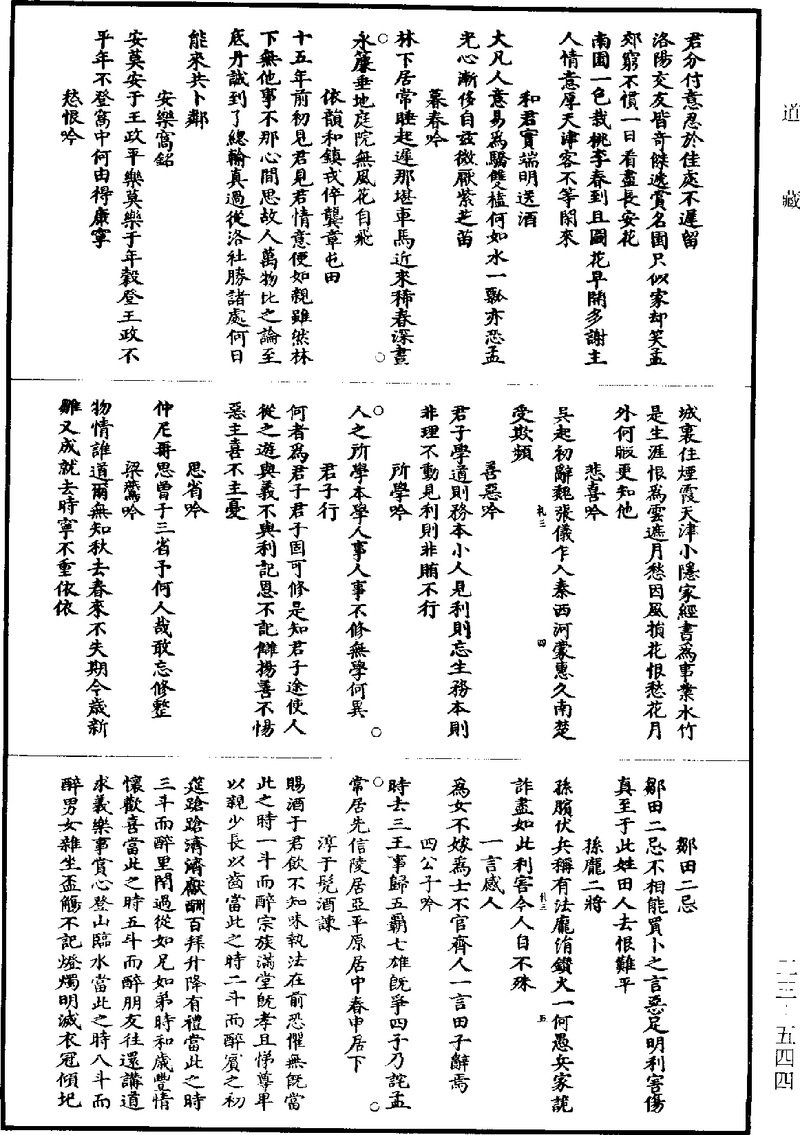 道藏
君分付意忍於佳處不遲留
洛陽交友皆奇傑遞賞名園只似家却笑孟
郊窮不慣一日看盡長安花
南園一色栽桃李春到且圖花早開多謝主
人情意厚天津客不等閑來
和君實端明送酒
大凡人意易爲驕雙榼何如水一瓢亦恐孟
光心漸侈自茲微厭紫芝苗
暮春吟
林下居常睡起遲那堪車馬近來稀春深晝
永簾垂地庭院無風花自飛
依韻和鎮戎倅龔章屯田
十五年前初見君見君情意便如親雖然林
下無他事不那心間思故人萬物比之論至
底丹誠到了總輸真過從洛社勝諸處何日
能來共卜鄰
安樂窩銘
安莫安于王政平樂莫樂于年穀登王政不
平年不登窩中何由得康寧
愁恨吟
城裏住煙霞天津小隱家經書爲事業水竹
是生涯恨爲雲遮月愁因風損花恨愁花月
外何暇更知他
悲喜吟
吳起初辭魏張儀乍入秦西河蒙惠久南楚
受欺頻
善惡吟
君子學道則務本小人見利則忘生務本則
非理不動見利則非賄不行
所學吟
人之所學本學人事人事不修無學何異
君子行
何者爲君子君子固可修是知君子途使人
從之遊與義不與利記恩不記讎揚善不揚
惡主喜不主憂
思省吟
仲尼再思曾子三省予何人哉敢忘修整
梁鷰吟
物情誰道爾無知秋去春來不失期今歲新
雛又成就去時寧不重依依
鄒田二忌
鄒田二忌不相能買卜之言惡足明利害傷
真至于此姓田人去恨難平
孫龐二將
孫臏伏兵稱有法龐涓鑽火一何愚兵家詭
詐盡如此利害令人自不殊
一言感人
爲女不嫁爲士不官齊人一言田子辭焉
四公子吟
時去三王事歸五霸七雄既爭四子乃詫孟
常居先信陵居亞平原居中春申居下
淳于髡酒諫
賜酒于君飲不知味執法在前恐懼無既當
此之時一斗而醉宗族滿堂既孝且悌尊卑
以親少長以齒當此之時二斗而醉賓之初
筵蹌蹌濟濟獻酬百拜升降有禮當此之時
三斗而醉里閈過從如兄如弟時和歲豐情
懷歡喜當此之時五斗而醉朋友往還講道
求義樂事賞心登山臨水當此之時八斗而
醉男女雜坐盃觴不記燈燭明滅衣冠傾圯
二三·五四四